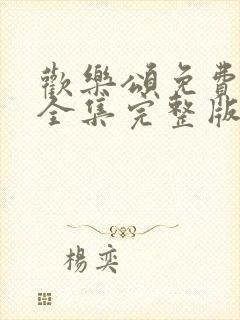 歡樂頌免費
全集完整版
楊奕